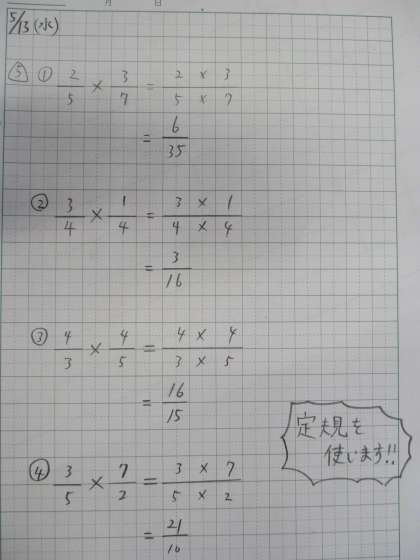 月 日
5/13 (水)
⑤ ① 2/5 × 3/7 = 2 × 3 / 5 × 7
= 6/35
② 3/4 × 1/4 = 3 × 1 / 4 × 4
= 3/16
③ 4/3 × 4/5 = 4 × 4 / 3 × 5
= 16/15
定規を
使います!!
④ 3/5 × 7/2 = 3 × 7 / 5 × 2
= 21/10